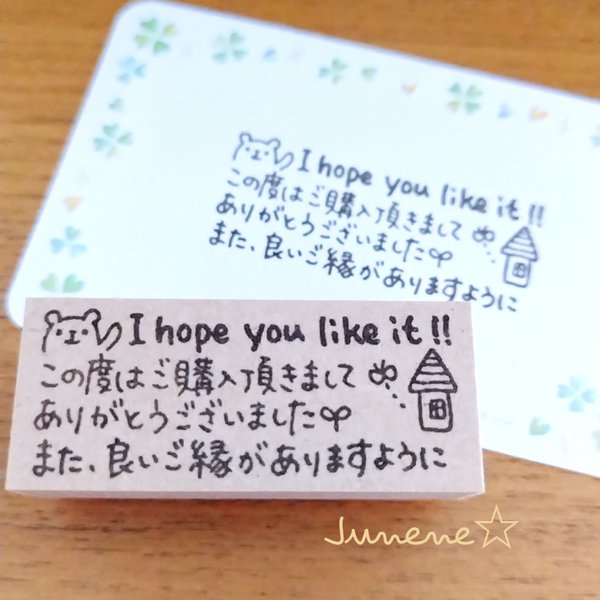 I hope you like it!!
この度はご購入頂きまして
ありがとうございました
また、良いご縁がありますように
I hope you like it!!
この度はご購入頂きまして
ありがとうございました
また、良いご縁がありますように
Junene☆